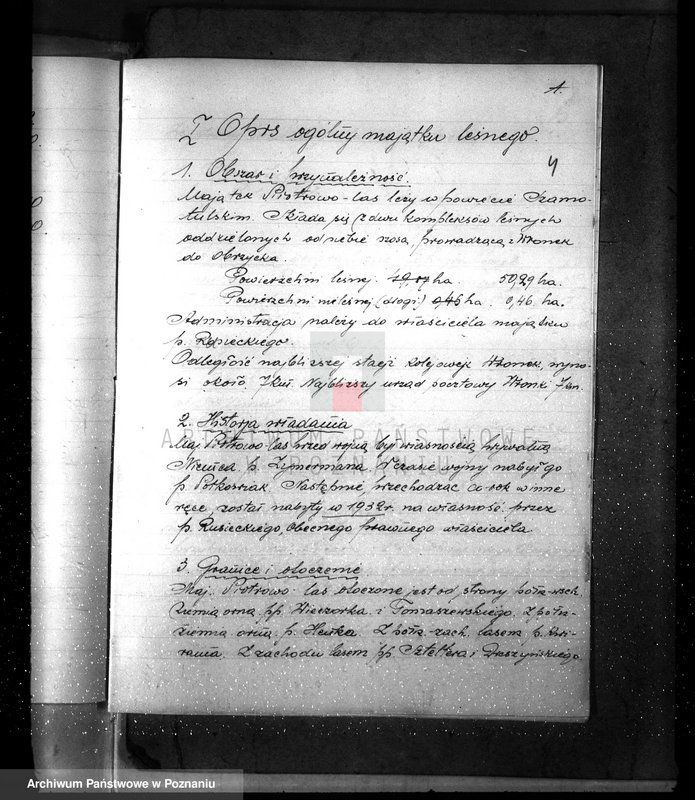 1.
I Opis ogólny majątku leśnego.
4
1. Obszar i przynależność.
Majątek Piotrowo-las leży w powiecie Szamo-
tulskim. Składa się z dwu kompleksów leśnych
oddzielonych od siebie szosą, prowadzącą z Wronek
do Obrzycka.
Powierzchni leśnej. ha. 50,29 ha.
Powierzchni nieleśnej (drogi) 0,45 ha. 0,46 ha.
Administracja należy do właściciela majątku
p.
Odległość najbliższej stacji kolejowej Wronek, wyno-
si około 7 km. Najbliższy urząd pocztowy Wronki 7 km.
2. Historja władania
Maj. Piotrowo las przed wojną był własnością prywatną
Niemca p. Zymermana. W czasie wojny nabył go
p. Następnie, przechodząc co rok w inne
ręce, został nabyty w 1932 r. na własność przez
p. Rusieckiego, obecnego prawnego właściciela
ARCHIWUM PAŃSTWOWE
W POZNANIU
3. Granice i otoczenie
Maj. Piotrowo-las otoczone jest od strony półn-wsch.
ziemią orną pp. Wieczorka i Tomaszewskiego. Z półn.
ziemią orną p. Heńka. Z półn. zach. lasem p.
Z zachodu lasem pp. i
Archiwum Państwowe w Poznaniu